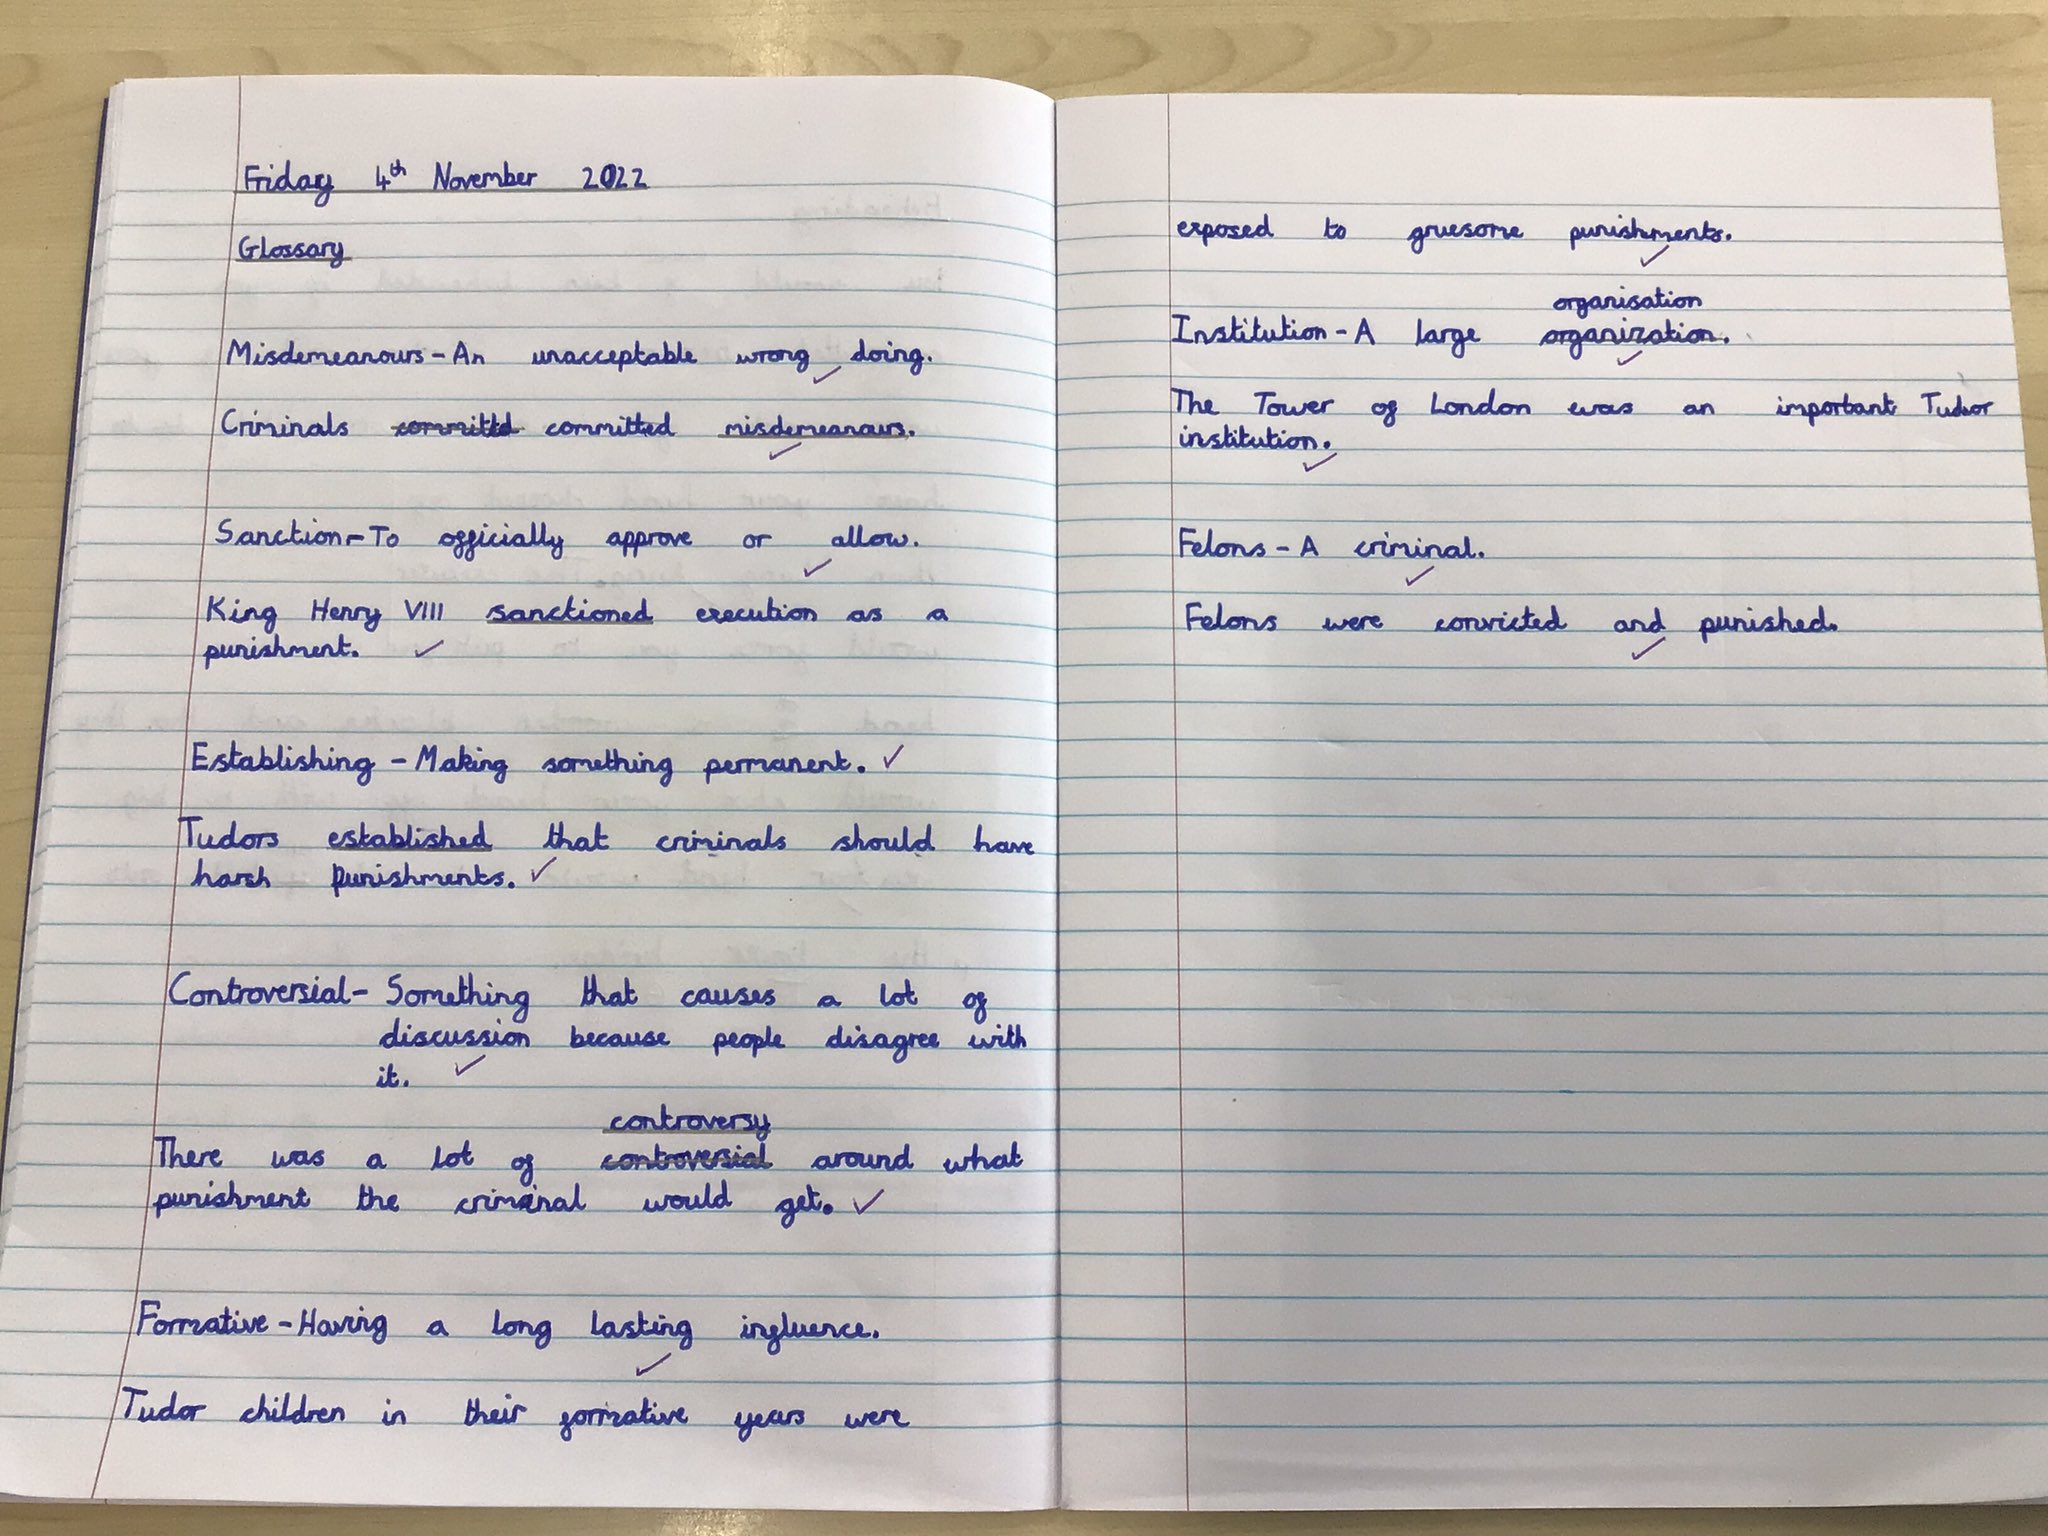 Friday 4th November 2022
Glossary
Misdemeanours - An unacceptable wrong doing.
Criminals committd committed misdemeanours.
Sanction - To officially approve or allow.
King Henry VIII sanctioned execution as a
punishment.
Establishing - Making something permanent.
Tudors established that criminals should have
harsh punishments.
Controversial - Something that causes a lot of
discussion because people disagree with
it.
controversy
There was a lot of controversial around what
punishment the criminal would get.
Formative - Having a long lasting influence.
Tudor children in their formative years were
exposed to gruesome punishments.
organisation
Institution - A large organization.
The Tower of London was an important Tudor
institution.
Felons - A criminal.
Felons were convicted and punished.